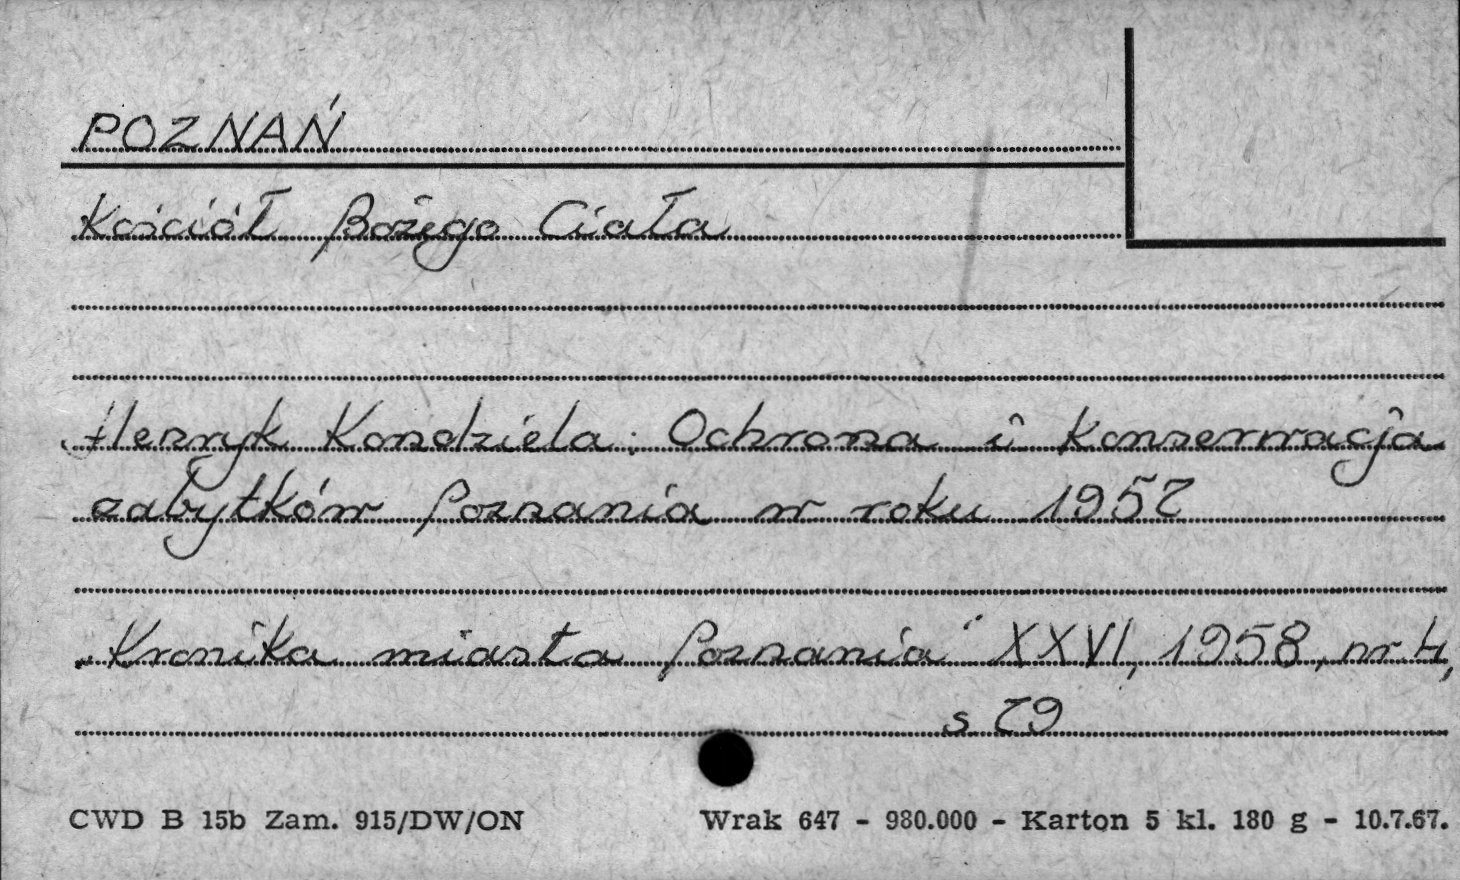 POZNAŃ
Kościół Bożego Ciała
Henryk Kondziela: Ochrona i konserwacja
zabytków Poznania w roku 1957
„Kronika miasta Poznania" XXVI, 1958, nr 4,
s 79
CWD B 15b Zam. 915/DW/ON Wrak 647 - 980.000 - Karton 5 kl. 180 g - 10.7.67.